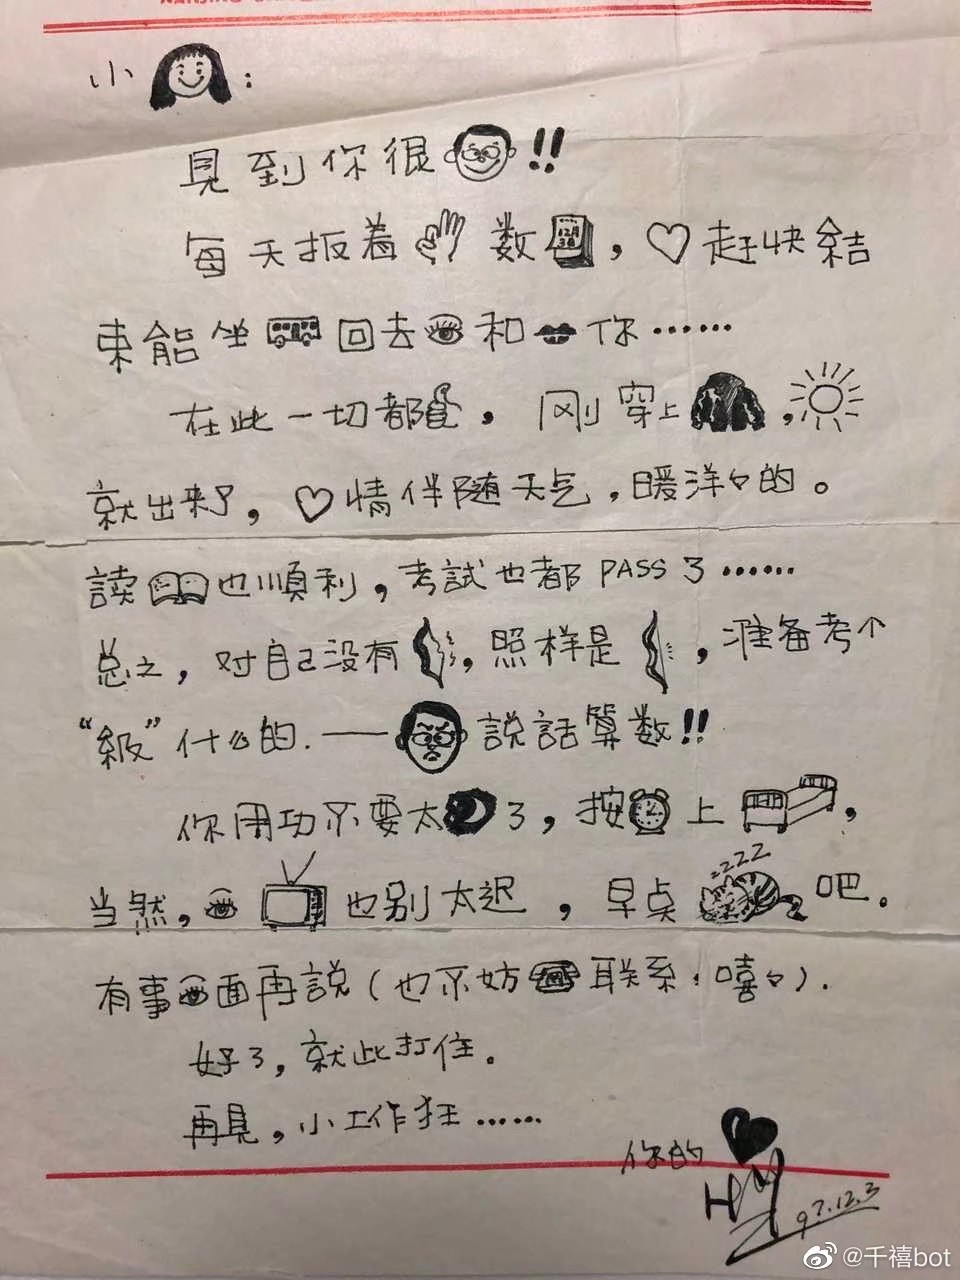 小：
見到你很!!
每天扳着数，赶快結
束能坐回去和你……
在此一切都，刚穿上，
就出来了，情伴随天气，暖洋々的。
读也順利，考試也都PASS了……
总之，对自己没有，照样是，准备考个
“級”什么的.——説話算数!!
你用功不要太了，按上，
当然，也别太迟，早点吧。
有事面再説(也不妨联系：嘻々).
好了，就此打住。
再見，小工作狂……
你的
97.12.3
@千禧bot